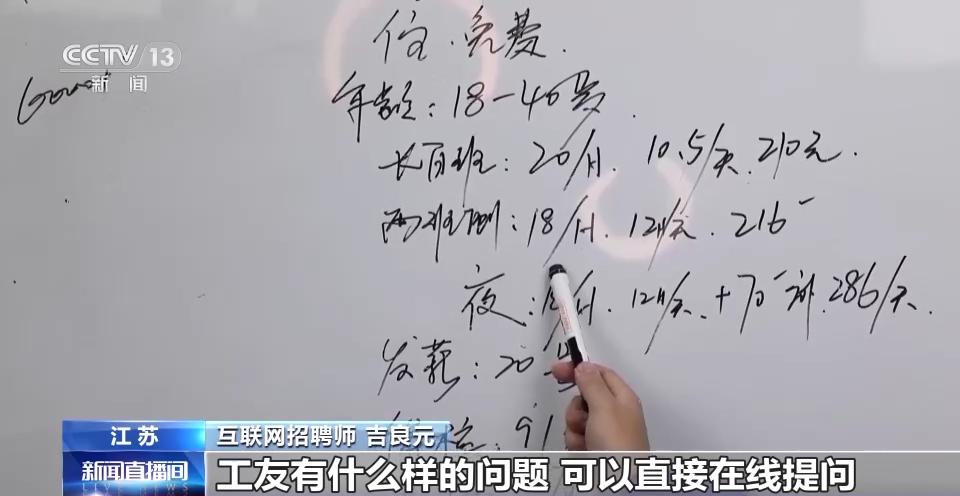 CCTV 13
新闻
住.免费.
年龄:18-40岁.
长白班:20/H.10.5/天.210元.
两班倒:18/H.12H/天.216
夜:18/H.12H/天.+70补.286/天.
发薪:20号
江苏
互联网招聘师 吉良元
新闻直播间
LIVE NEWS
工友有什么样的问题 可以直接在线提问